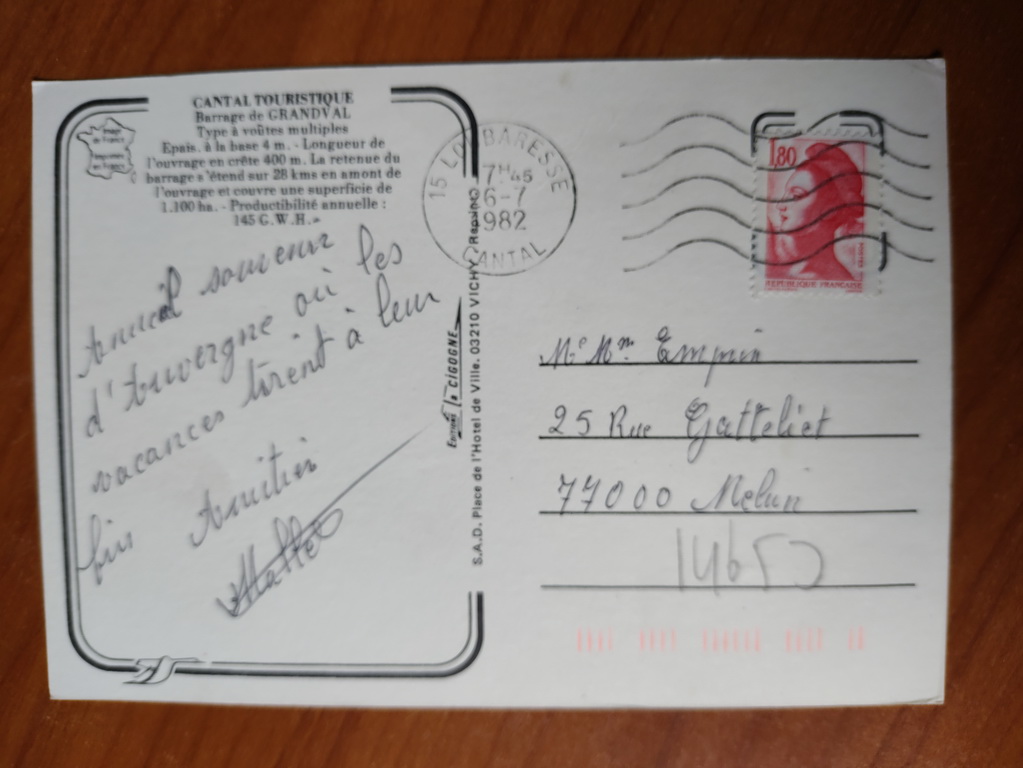 CANTAL TOURISTIQUE
Barrage de GRANDVAL
Type à voûtes multiples
Epais. à la base 4 m. - Longueur de
l'ouvrage en crête 400 m. La retenue du
barrage s'étend sur 28 kms en amont de
l'ouvrage et couvre une superficie de
1.100 ha. - Productibilité annuelle :
145 G.W.H.
Amical souvenir
d'Auvergne où les
vacances tirent à leur
fin Amitiés
EDITIONS la CIGOGNE
S.A.D. Place de l'Hotel de Ville. 03210 VICHY
15 LOUBARESSE
7H45
6-7
1982
CANTAL
1,80
REPUBLIQUE FRANÇAISE
POSTES
Me Mr
25 Rue Gatteliet
77000 Melun